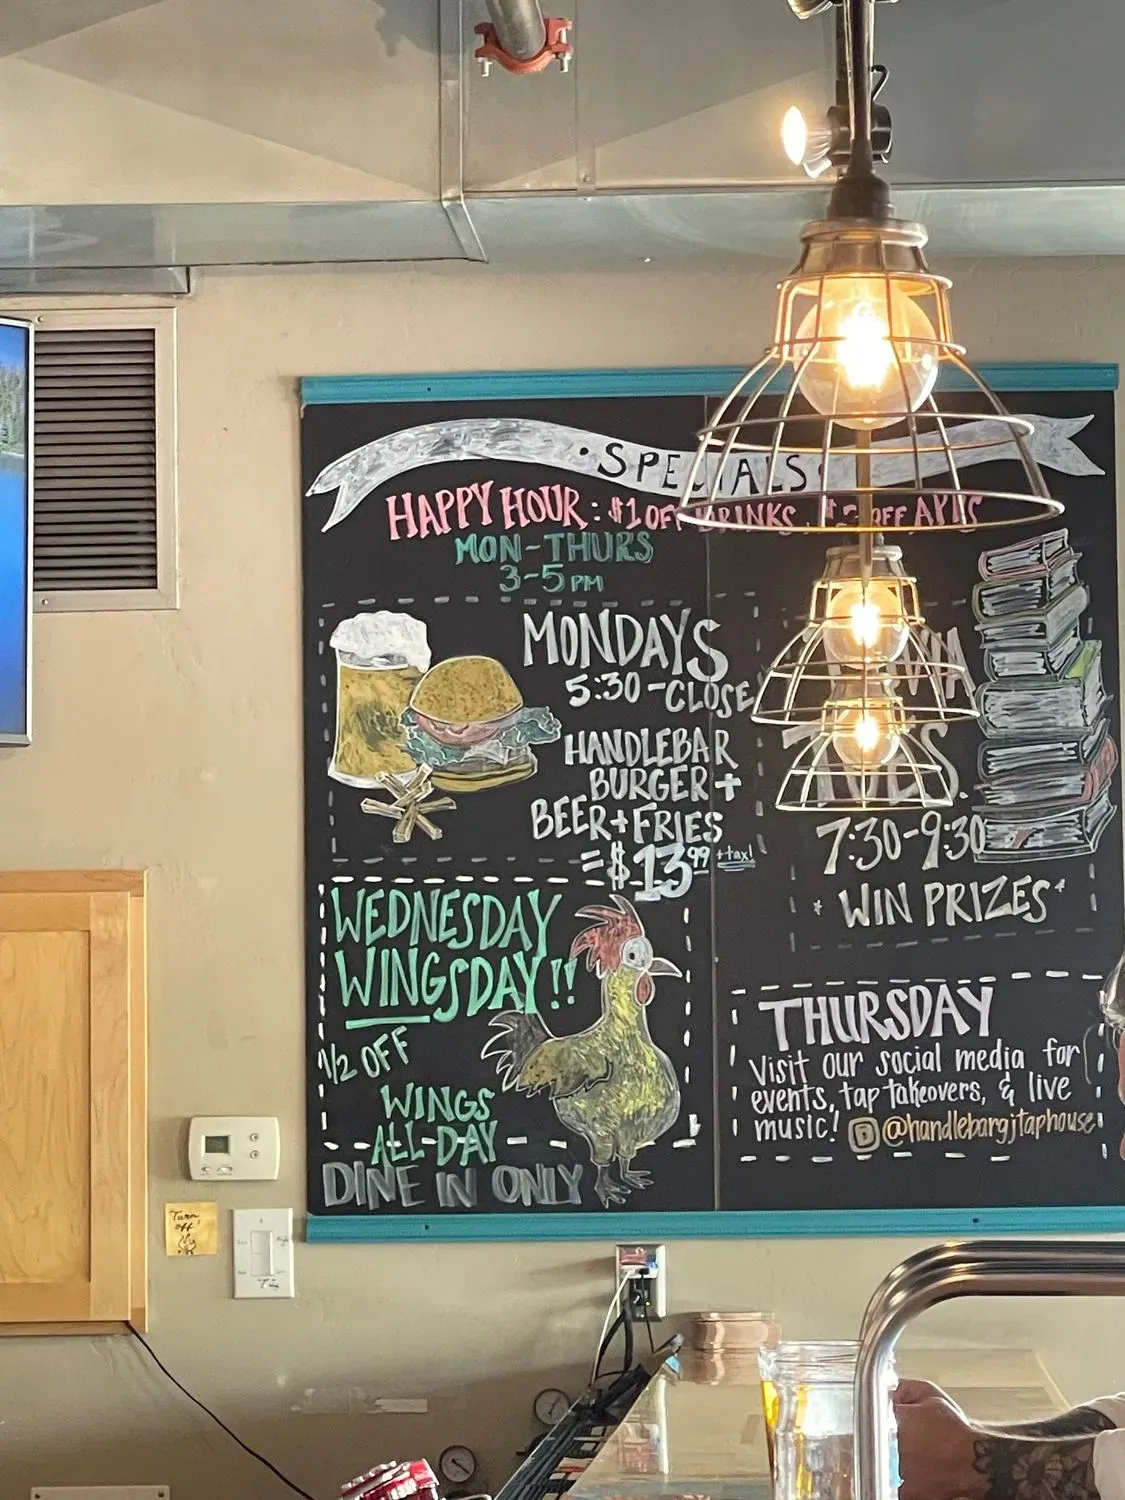 ·SPECIALS·
HAPPY HOUR: $1 OFF DRINKS, OFF APPS
MON-THURS
3-5PM
MONDAYS
5:30-CLOSE
HANDLEBAR
BURGER+
BEER+FRIES
=$13.99 +tax!
WEDNESDAY
WINGSDAY!!
1/2 OFF
WINGS
ALL-DAY
DINE IN ONLY
7:30-9:30
WIN PRIZES
THURSDAY
Visit our social media for
events, tap takeovers, & live
music! @handlebargjtaphouse
Turn
off!